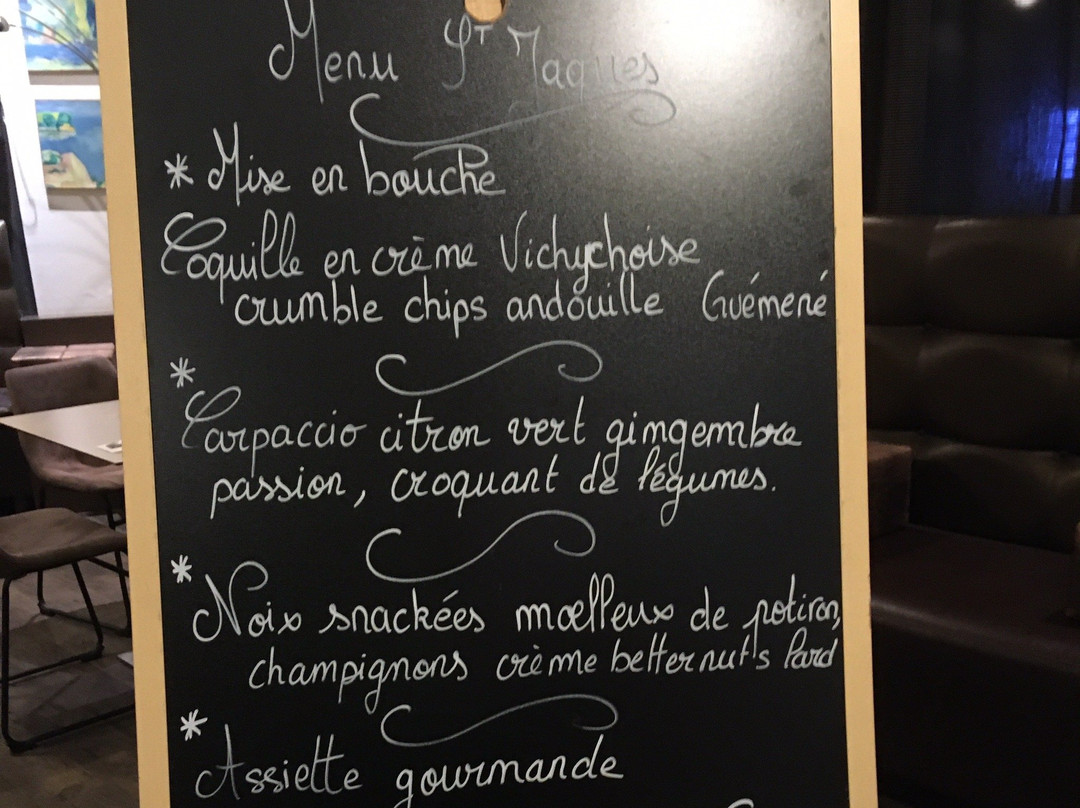 Menu St Jaques
* Mise en bouche
Coquille en crème Vichychoise
crumble chips andouille Guémené
*
Carpaccio citron vert gingembre
passion, croquant de légumes.
*
Noix snackées mœlleux de potiron,
champignons crème betternut's lard
*
Assiette gourmande